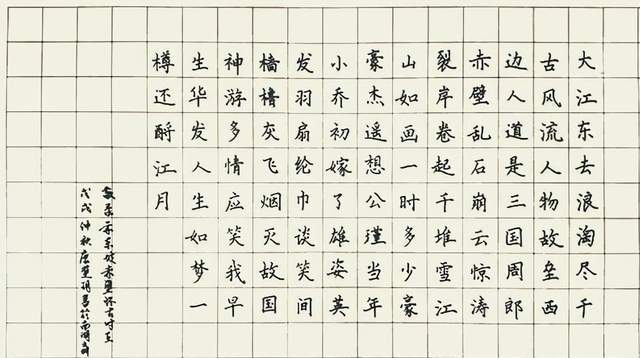 大江东去浪淘尽千
古风流人物故垒西
边人道是三国周郎
赤壁乱石崩云惊涛
裂岸卷起千堆雪江
山如画一时多少豪
豪杰遥想公瑾当年
小乔初嫁了雄姿英
发羽扇纶巾谈笑间
樯橹灰飞烟灭故国
神游多情应笑我早
生华发人生如梦一
樽还酹江月
苏东坡赤壁怀古
戊戌仲秋唐书于西湖